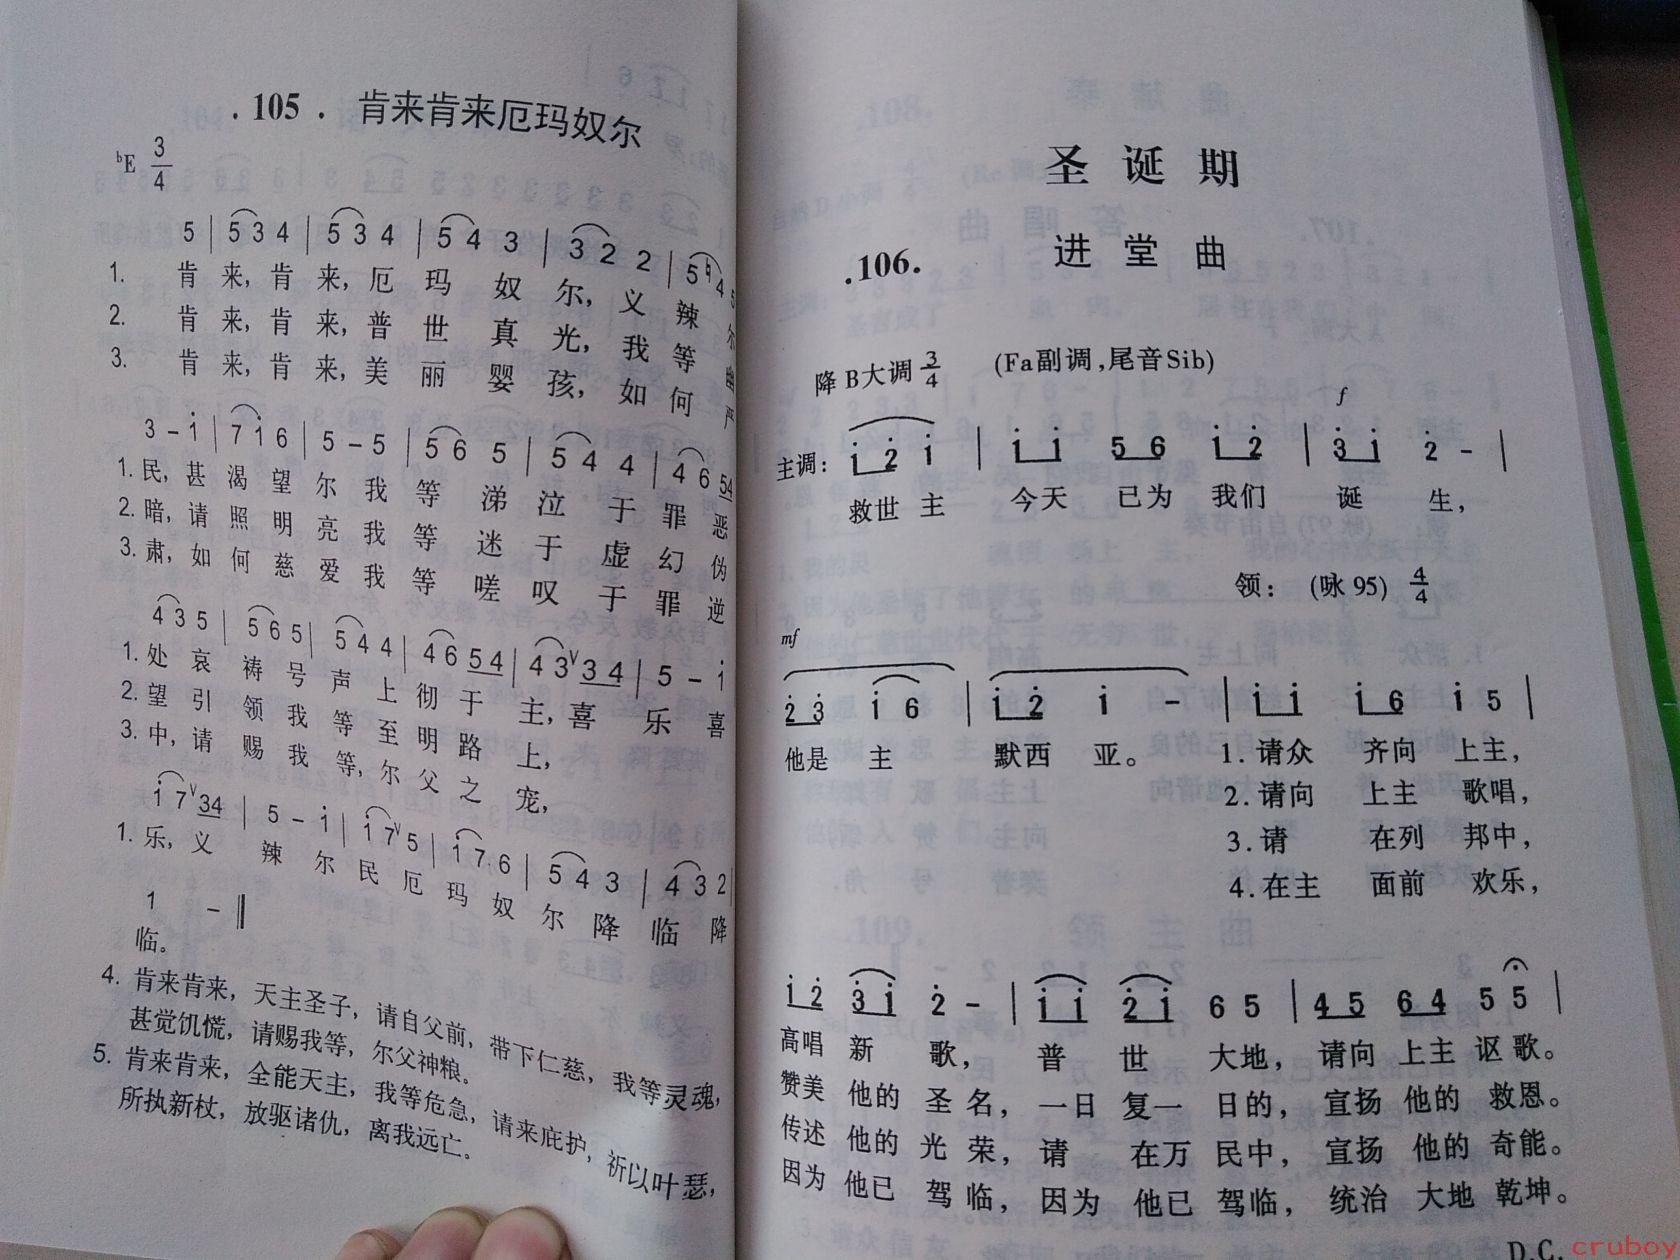 . 105 . 肯来肯来厄玛奴尔
bE 3/4
5 | 5 3 4 | 5 3 4 | 5 4 3 | 3 2 2 | 5 4
1. 肯 来, 肯 来, 厄 玛 奴 尔, 义 辣 尔
2. 肯 来, 肯 来, 普 世 真 光, 我 等 幽
3. 肯 来, 肯 来, 美 丽 婴 孩, 如 何 严
3 - i | 7 i 6 | 5 - 5 | 5 6 5 | 5 4 4 | 4 6 54
1. 民, 甚 渴 望 尔 我 等 涕 泣 于 罪 恶
2. 暗, 请 照 明 亮 我 等 迷 于 虚 幻 伪
3. 肃, 如 何 慈 爱 我 等 嗟 叹 于 罪 逆
4 3 5 | 5 6 5 | 5 4 4 | 4 6 5 4 | 4 3 V 3 4 | 5 - i
1. 处 哀 祷 号 声 上 彻 于 主, 喜 乐 喜
2. 望 引 领 我 等 至 明 路 上,
3. 中, 请 赐 我 等, 尔 父 之 宠,
i 7 V 34 | 5 - i | i 7 V 5 | i 7 6 | 5 4 3 | 4 3 2 |
1. 乐, 义 辣 尔 民 厄 玛 奴 尔 降 临 降
1 - ‖
临。
4. 肯来肯来, 天主圣子, 请自父前, 带下仁慈, 我等灵魂,
甚觉饥慌, 请赐我等, 尔父神粮。
5. 肯来肯来, 全能天主, 我等危急, 请来庇护, 祈以叶瑟,
所执新杖, 放驱诸仇, 离我远亡。
圣 诞 期
.106. 进 堂 曲
降 B大调 3/4 (Fa副调,尾音Sib)
f
主调: i 2 i | i i 5 6 i 2 | 3 i 2 - |
救世 主 今天 已为 我们 诞 生,
领: (咏 95) 4/4
mf
2 3 i 6 | i 2 i - | i i i 6 i 5 |
他是 主 默西 亚。 1.请众 齐向 上主,
2.请向 上主 歌唱,
3.请 在列 邦中,
4.在主 面前 欢乐,
i 2 3 i 2 - | i i 2 i 6 5 | 4 5 6 4 5 5 |
高唱 新 歌, 普 世 大地, 请向 上主 讴歌。
赞美 他的 圣 名, 一日 复一 日的, 宣扬 他的 救恩。
传述 他的 光 荣, 请 在万 民中, 宣扬 他的 奇能。
因为 他已 驾 临, 因为 他已 驾临, 统治 大地 乾坤。
D.C.
cruboy